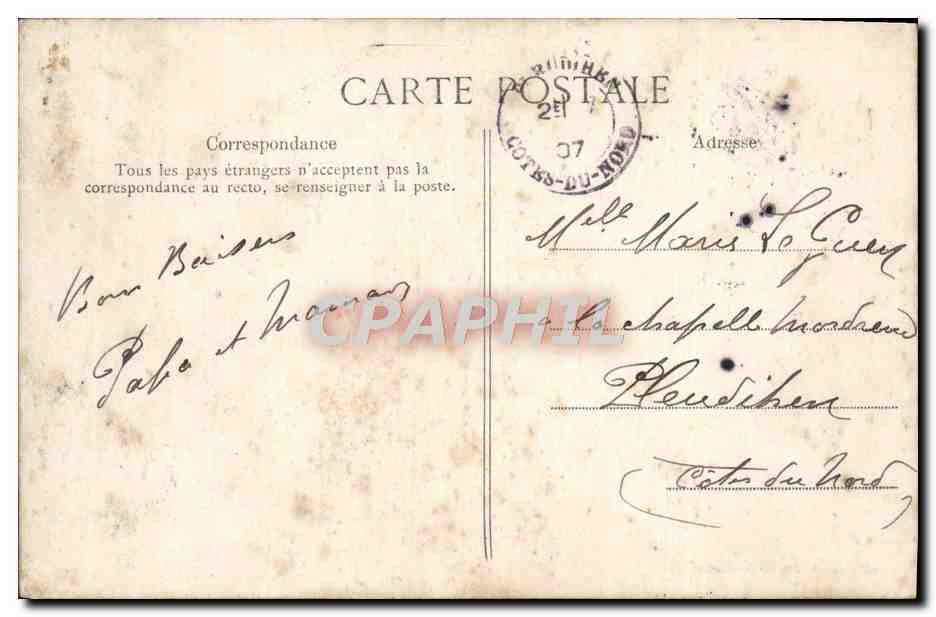 CARTE POSTALE
2E
07
COTES-DU-NORD
Correspondance
Tous les pays étrangers n'acceptent pas la
correspondance au recto, se renseigner à la poste.
Adresse
Bons Baisers
Papa et Maman
Melle Marie Le
a la chapelle
Pleudihen
(Côtes du Nord)
CPAPHIL